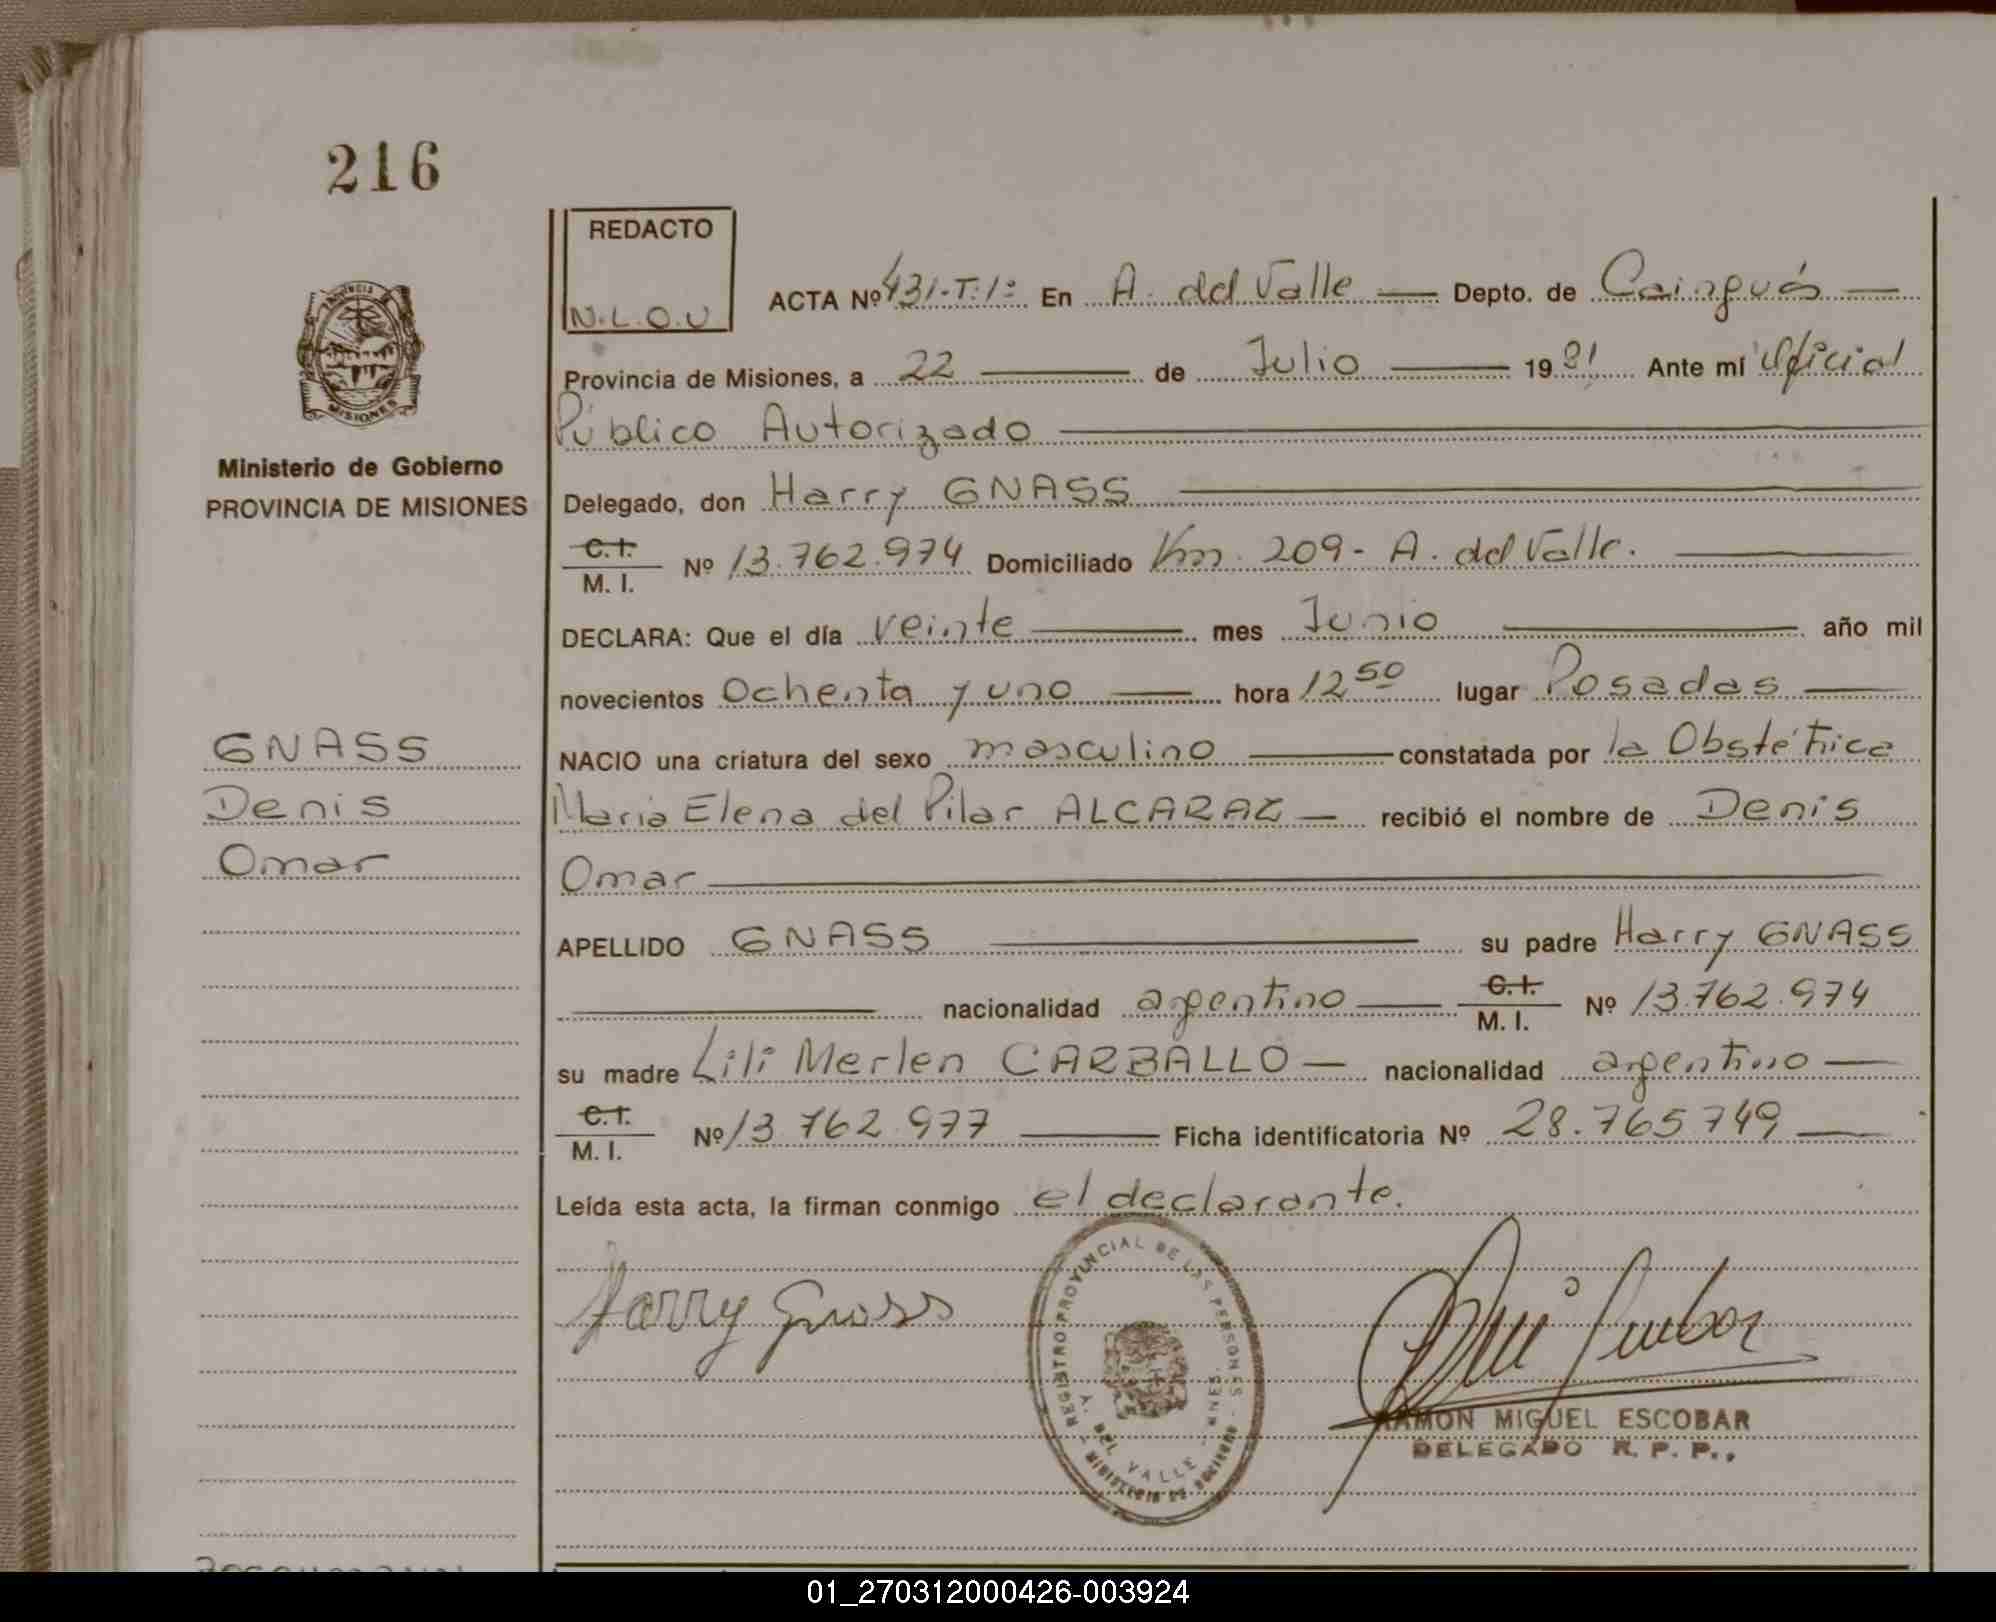 216
REDACTO
N.L.O.U
ACTA Nº 431-T:1º En A. del Valle Depto. de Cainguás
Provincia de Misiones, a 22 de Julio 1981 Ante mí Oficial
Público Autorizado
PROVINCIA
MISIONES
Ministerio de Gobierno
PROVINCIA DE MISIONES
Delegado, don Harry GNASS
C.I.
M. I. Nº 13.762.974 Domiciliado Km. 209- A. del Valle.
DECLARA: Que el día veinte mes Junio año mil
novecientos Ochenta y uno hora 12 50 lugar Posadas
NACIO una criatura del sexo masculino constatada por la Obstétrica
Maria Elena del Pilar ALCARAZ recibió el nombre de Denis
Omar
GNASS
Denis
Omar
APELLIDO GNASS su padre Harry GNASS
nacionalidad argentino C.I.
M. I. Nº 13.762.974
su madre Lili Merlen CARBALLO nacionalidad argentino
C.I.
M. I. Nº 13.762.977 Ficha identificatoria Nº 28.765.749
Leída esta acta, la firman conmigo el declarante.
Harry Gnass
REGISTRO PROVINCIAL DE LAS PERSONAS
A. DEL VALLE - MNES.
RAMON MIGUEL ESCOBAR
DELEGADO R. P. P.,
01_270312000426-003924